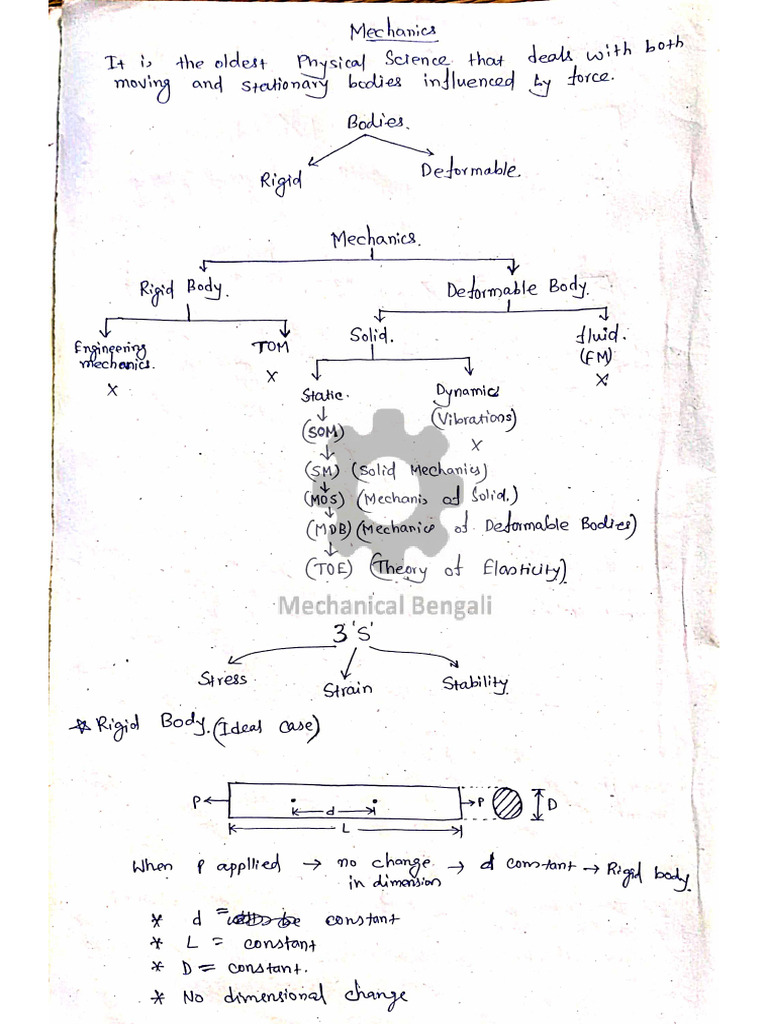 Mechanics
It is the oldest Physical Science that deals with both
moving and stationary bodies influenced by force.
Bodies.
Rigid
Deformable.
Mechanics.
Rigid Body.
Deformable Body.
Engineering
mechanics.
X
TOM
X
Solid.
fluid.
(FM)
X
Static.
Dynamic
(SOM)
(Vibrations)
X
(SM) (Solid Mechanics)
(MOS) (Mechanis of Solid.)
(MDB) (Mechanics of Deformable Bodies)
(TOE) (Theory of Elasticity)
Mechanical Bengali
3 'S'
Stress
Strain
Stability
Rigid Body. (Ideal case)
P
d
P
D
L
When P appllied → no change → d constant → Rigid body.
in dimension
* d = constant
* L = constant
* D = constant.
* No dimensional change